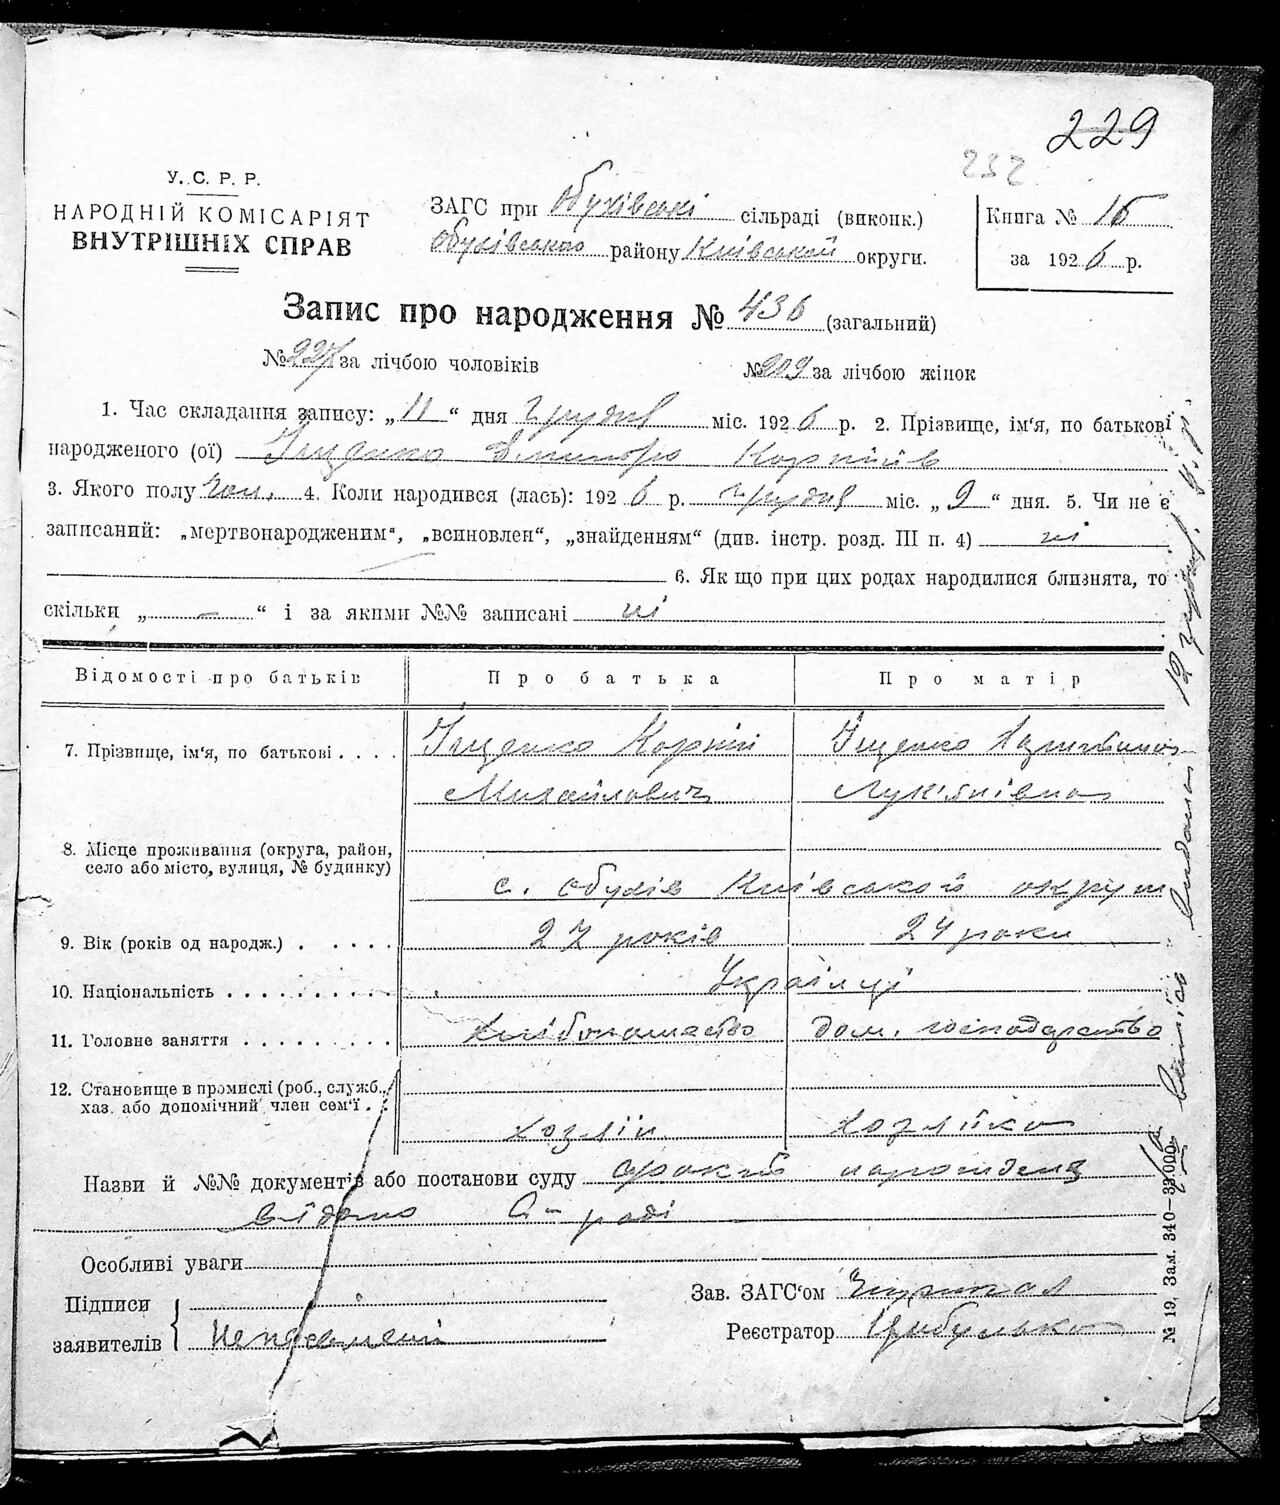 229
232
У.С.Р.Р.
НАРОДНІЙ КОМІСАРІЯТ
ВНУТРІШНІХ СПРАВ
ЗАГС при Обухівські сільраді (виконк.)
Обухівського району Київської округи.
Книга № 15
за 1926 р.
Запис про народження № 436 (загальний)
№ 227 за лічбою чоловіків № 209 за лічбою жінок
1. Час складання запису: „11“ дня грудня міс. 1926 р. 2. Прізвище, ім'я, по батькові
народженого (ої) Іщенко Дмитро Корніїв
3. Якого полу чол. 4. Коли народився (лась): 1926 р. грудня міс. „9“ дня. 5. Чи не є
записаний: „мертвонародженим“, „всиновлен“, „знайденням“ (див. інстр. розд. III п. 4) ні
6. Як що при цих родах народилися близнята, то
скільки „ — “ і за якими №№ записані ні
Відомості про батьків Про батька Про матір
7. Прізвище, ім'я, по батькові . . . . Іщенко Корній Іщенко
Михайлович Лук'янівна
8. Місце проживання (округа, район,
село або місто, вулиця, № будинку)
с. Обухів Київської округи
9. Вік (років од народж.) . . . . . 27 років 24 роки
10. Національність . . . . . . . . . . Українці
11. Головне заняття . . . . . . . . . Хліборобство дом. господарство
12. Становище в промислі (роб., служб.,
хаз. або допомічний член сем'ї . .
хазяїн хазяйка
Назви й №№ документів або постанови суду факт народження
відомо С-раді
Особливі уваги
Підписи
заявителів { Неписьменний
Зав. ЗАГС'ом
Реєстратор Цибулько
№ 19, Зам. 340—33.000.
витяг видано 12 грудня